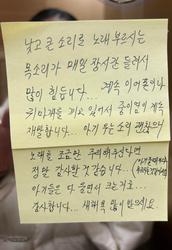 낮고 큰 소리로 노래부르시는
목소리가 매일 장시간 들려서
많이 힘듭니다... 계속 이어폰이나
귀마개를 끼고 있어서 중이염이 계속
재발합니다... 아기 우는 소리 괜찮으니
노래를 조금만 주의해주신다면
정말 감사할 것 같습니다...
아기들은 다 울면서 크는거죠...
감사합니다... 새해복 많이 받으세요.